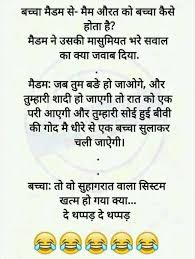 बच्चा मैडम से- मैम औरत को बच्चा कैसे
होता है?
मैडम ने उसकी मासुमियत भरे सवाल
का क्या जवाब दिया.
.
.
मैडम: जब तुम बङे हो जाओगे, और
तुम्हारी शादी हो जाएगी तो रात को एक
परी आएगी और तुम्हारी सोई हुई बीवी
की गोद मै धीरे से एक बच्चा सुलाकर
चली जाऐगी।
.
.
बच्चा: तो वो सुहागरात वाला सिस्टम
खत्म हो गया क्या...
दे थप्पड़ दे थप्पड़
😂😂😂😂😂